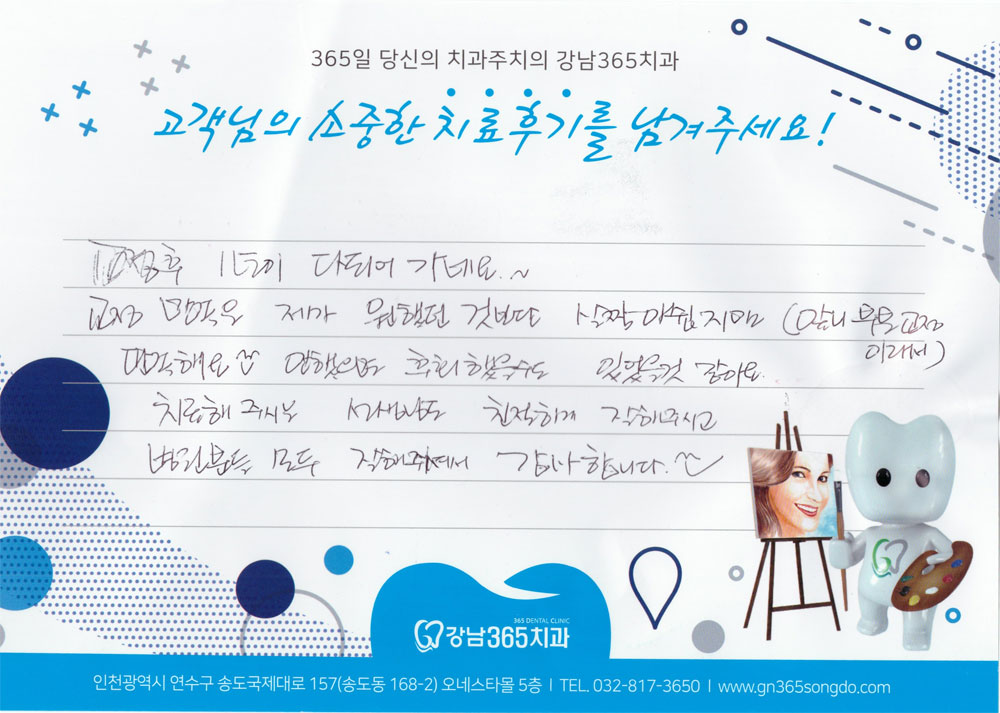 365일 당신의 치과주치의 강남365치과
고객님의 소중한 치료후기를 남겨주세요!
교정후 1년이 다되어 가네요.~
교정 만족은 제가 원했던 것보다 살짝 아쉽지만 (앞니 부분교정
이라서)
만족해요 안했으면 후회했을수도 있었을것 같아요.
치료해 주시는 선생님도 친절하게 잘해주시고
병원분들 모두 잘해주셔서 감사합니다.
365 DENTAL CLINIC
강남365치과
인천광역시 연수구 송도국제대로 157(송도동 168-2) 오네스타몰 5층 | TEL. 032-817-3650 | www.gn365songdo.com